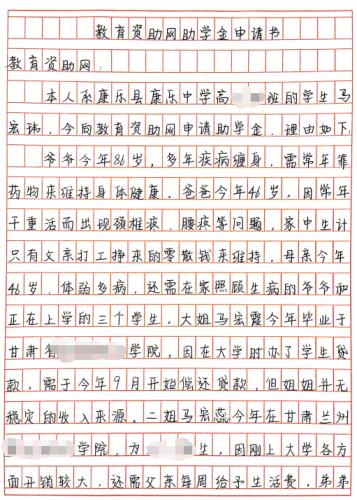 教育资助网助学金申请书
教育资助网：
本人系康乐县康乐中学高 班的学生马
宏玮，今向教育资助网申请助学金，理由如下
爷爷今年86岁，多年疾病缠身，需常年靠
药物来维持身体健康。爸爸今年46岁，因常年
干重活而出现颈椎疾，腰疾等问题，家中生计
只有父亲打工挣来的零散钱来维持，母亲今年
46岁，体弱多病，还需在家照顾生病的爷爷和
正在上学的三个学生。大姐马宏霞今年毕业于
甘肃省 学院，因在大学时办了学生贷
款，需于今年9月开始偿还贷款，但姐姐并无
稳定的收入来源。二姐马宏蕊今年在甘肃兰州
学院，为 生，因刚上大学各方
面开销较大，还需父亲每周给予生活费，弟弟